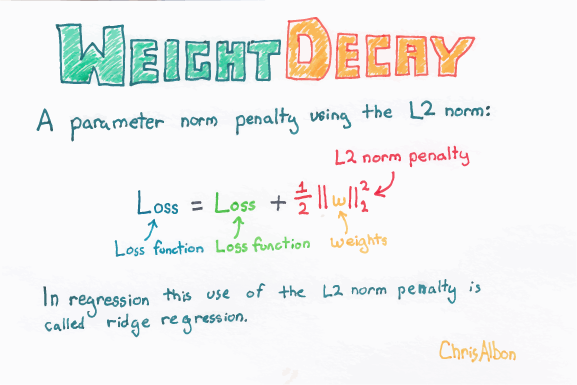 WEIGHT DECAY
A parameter norm penalty using the L2 norm:
L2 norm penalty
Loss = Loss + 1/2 ||w||²₂
Loss function Loss function weights
In regression this use of the L2 norm penalty is
called ridge regression.
Chris Albon